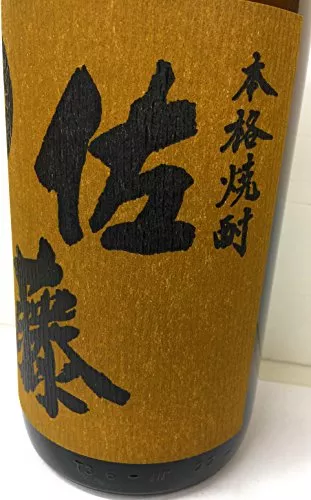 本格焼酎
佐
藤